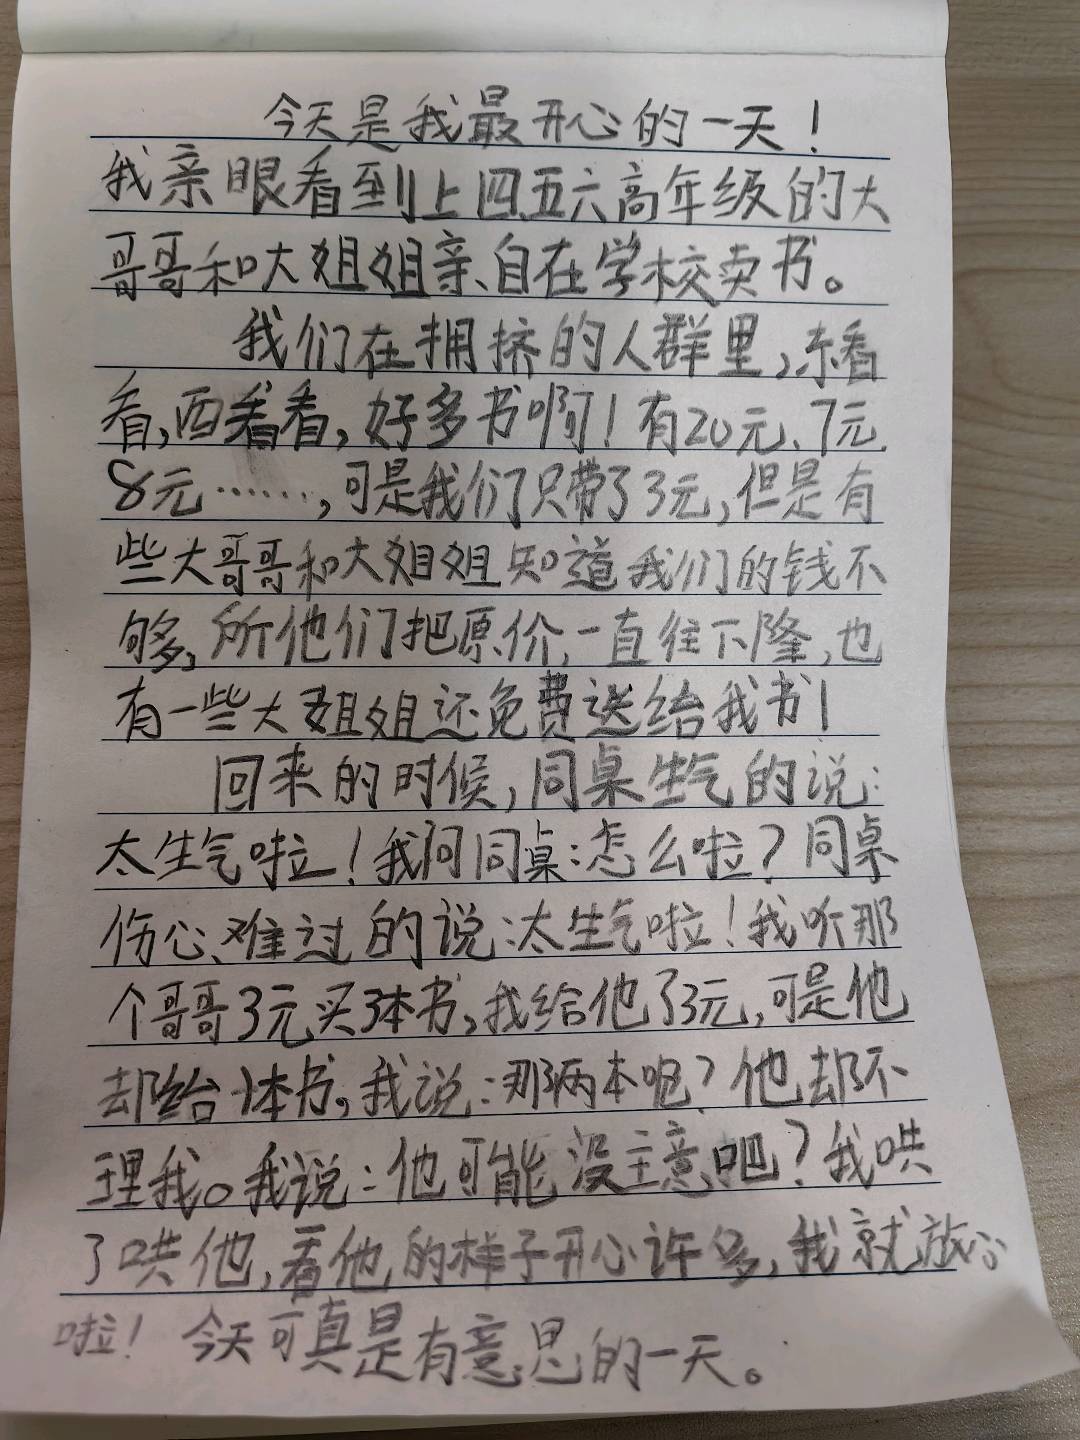 今天是我最开心的一天！
我亲眼看到上四、五六高年级的大
哥哥和大姐姐亲自在学校卖书。
我们在拥挤的人群里，东看
看，西看看，好多书啊！有20元、7元、
8元……，可是我们只带了3元，但是有
些大哥哥和大姐姐知道我们的钱不
够，所他们把原价，一直往下隆，也
有一些大姐姐还免费送给我书！
回来的时候，同桌生气的说：
太生气啦！我问同桌：怎么啦？同桌
伤心、难过的说：太生气啦！我听那
个哥哥3元买3本书，我给他了3元，可是他
却给1本书。我说：那两本呢？他却不
理我。我说：他可能没主意吧？我哄
了哄他，看他的样子开心许多，我就放心
啦！今天可真是有意思的一天。